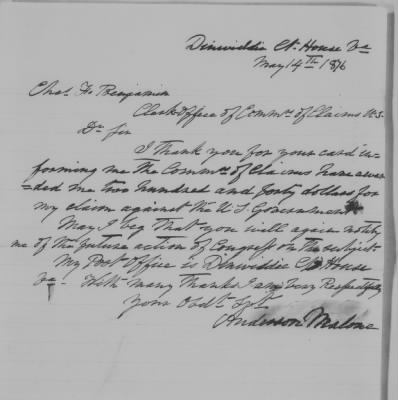 Dinwiddie Ct. House Va
May 14th 1876
Chas. F. Benjamin
Clerk office of Commrs of Claims U.S.
Dr Sir
I thank you for your card in-
forming me the Commrs of Claims have awar-
=ded me two hundred and forty dollars for
my claim against the U.S. Government
May I beg that you will again notify
me of the future action of Congress on the subject.
My Post Office is Dinwiddie Ct House
Va. With many thanks I am Very Respectfully
Your Obdt Svt
Anderson Malone